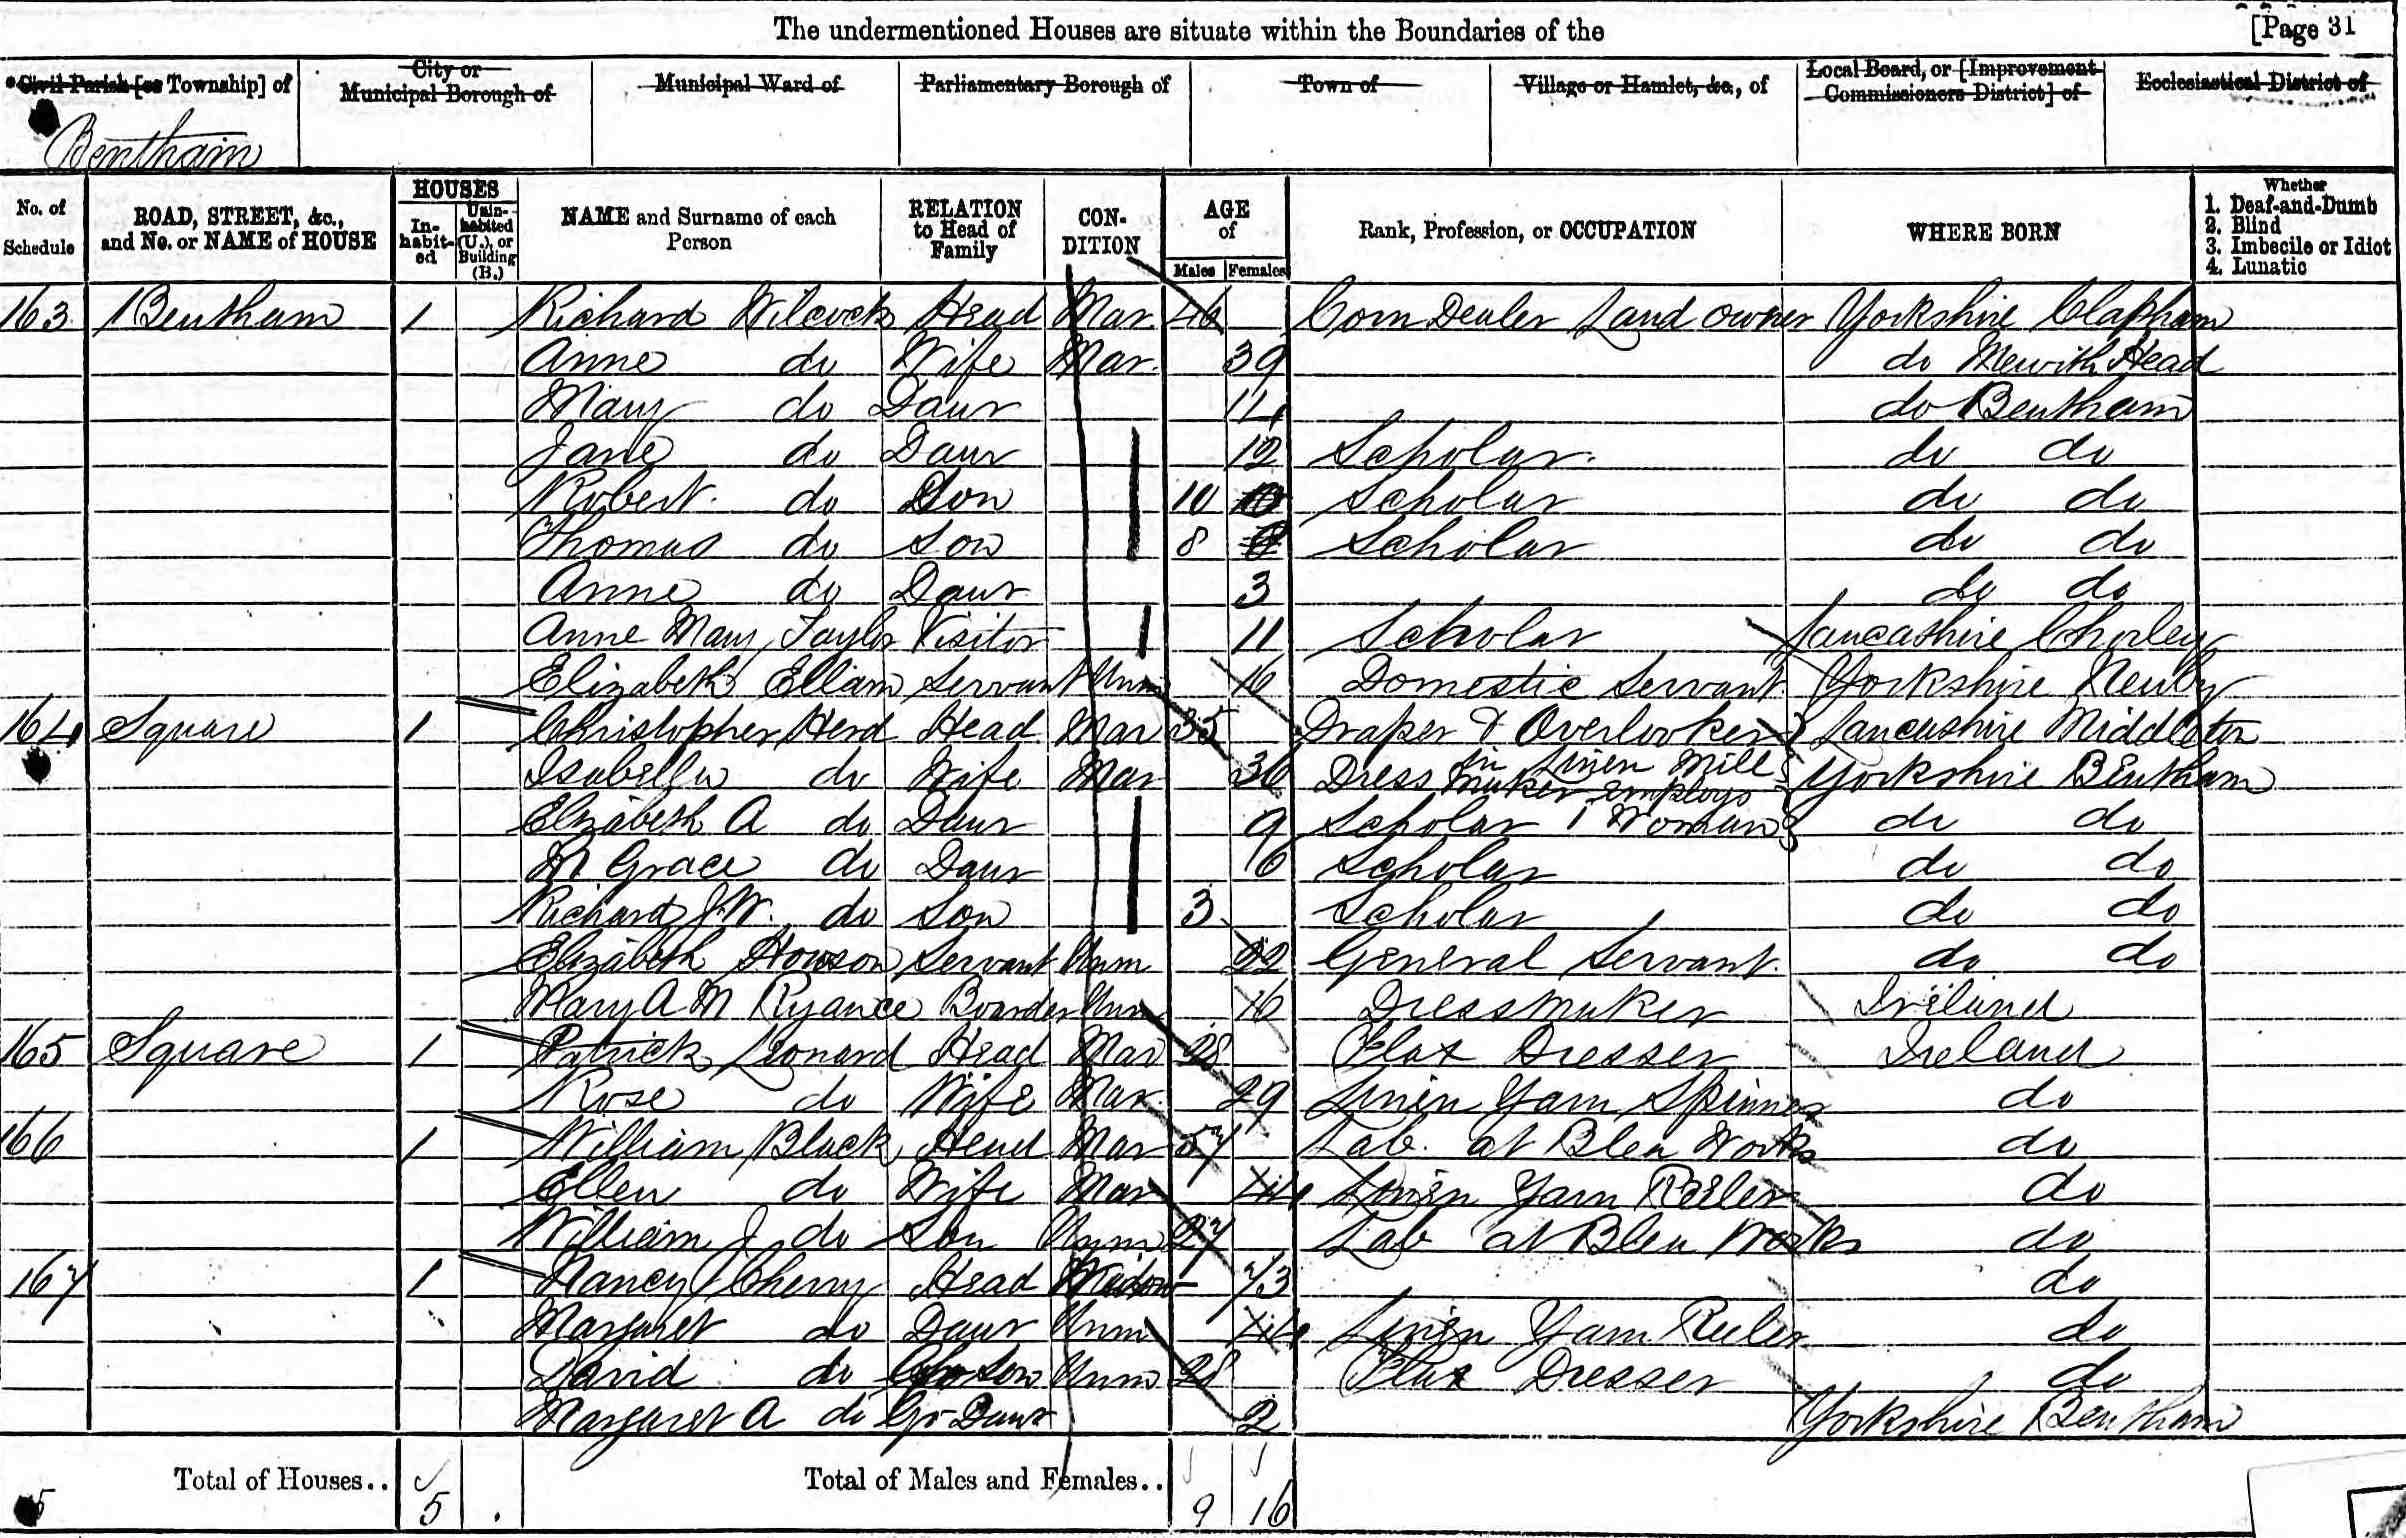 The undermentioned Houses are situate within the Boundaries of the [Page 31
*Civil Parish [or Township] of City or Municipal Borough of Municipal Ward of Parliamentary Borough of Town of Village or Hamlet, &c., of Local Board, or [Improvement Commissioners District] of Ecclesiastical District of
Bentham
No. of Schedule ROAD, STREET, &c., and No. or NAME of HOUSE HOUSES In-habit-ed Unin-habited (U.), or Building (B.) NAME and Surname of each Person RELATION to Head of Family CON-DITION AGE of Males Females Rank, Profession, or OCCUPATION WHERE BORN Whether 1. Deaf-and-Dumb 2. Blind 3. Imbecile or Idiot 4. Lunatic
163 Bentham 1 Richard Wilcock Head Mar 46 Corn Dealer Land owner Yorkshire Clapham
Anne do Wife Mar. 39 do Mewith Head
Mary do Daur 14 do Bentham
Jane do Daur 12 Scholar. do do
Robert do Son 10 Scholar do do
Thomas do Son 8 Scholar do do
Anne do Daur 3 do do
Anne Mary Taylor Visitor 11 Scholar Lancashire Chorley
Elizabeth Ellam Servant Unm 16 Domestic Servant Yorkshire Newby
164 Square 1 Christopher Herd Head Mar 35 Draper & Overlooker Lancashire Middleton
in Linen Mill
Isabella do Wife Mar 36 Dress Maker employs Yorkshire Bentham
1 Woman
Elizabeth A do Daur 9 Scholar do do
M Grace do Daur 6 Scholar do do
Richard J. W. do Son 3 Scholar do do
Elizabeth Howson Servant Unm 22 General Servant do do
Mary A M Ryance Boarder Unm 16 Dressmaker Ireland
165 Square 1 Patrick Leonard Head Mar 28 Flax Dresser Ireland
Rose do Wife Mar 29 Linen Yarn Spinner do
166 1 William Black Head Mar 57 Lab. at Blea Works do
Ellen do Wife Mar 44 Linen Yarn Reeler do
William J do Son Unm 27 Lab at Blea Works do
167 1 Nancy Cherry Head Widow 73 do
Margaret do Daur Unm 44 Linen Yarn Reeler do
David do Son Unm 28 Flax Dresser do
Margaret A do Gr-Daur 2 Yorkshire Bentham
Total of Houses.. 5 Total of Males and Females.. 9 16